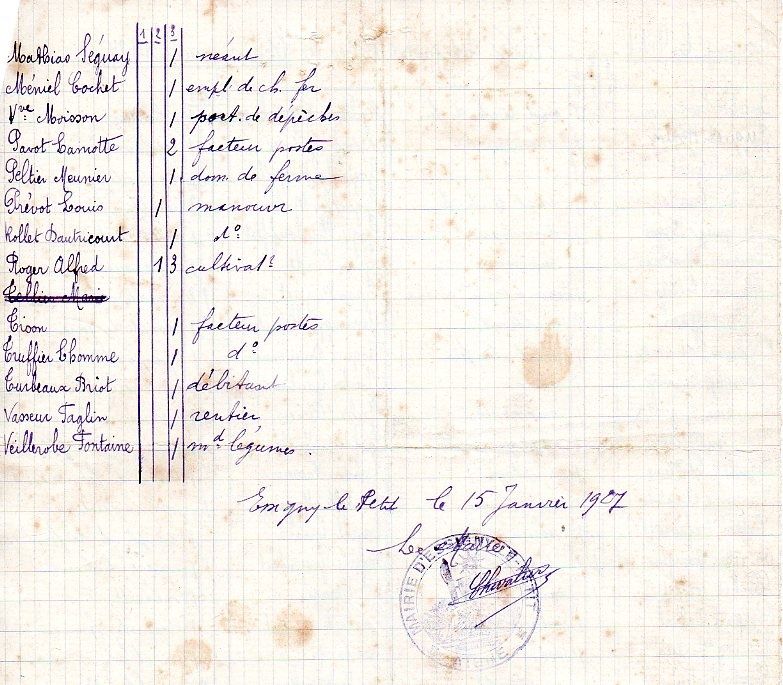 1 2 3
Mathias Séguay 1 néant
Méniel Cochet 1 empl. de ch. fer
Vve Moisson 1 port. de dépèches
Pavot Lamotte 2 facteur postes
Peltier Meunier 1 dom. de ferme
Prévot Louis 1 manouvr
Rollet Dautricourt 1 do
Roger Alfred 1 3 cultivatr
Tellier Marie
Tison 1 facteur postes
Truffier Lhomme 1 do
Turbeaux Briot 1 débitant
Vasseur Taglin 1 rentier
Veillerobe Fontaine 1 md légumes.
Essigny-le-Petit le 15 Janvier 1907
Le Maire
MAIRIE D'ESSIGNY-LE-PETIT
Chevalier